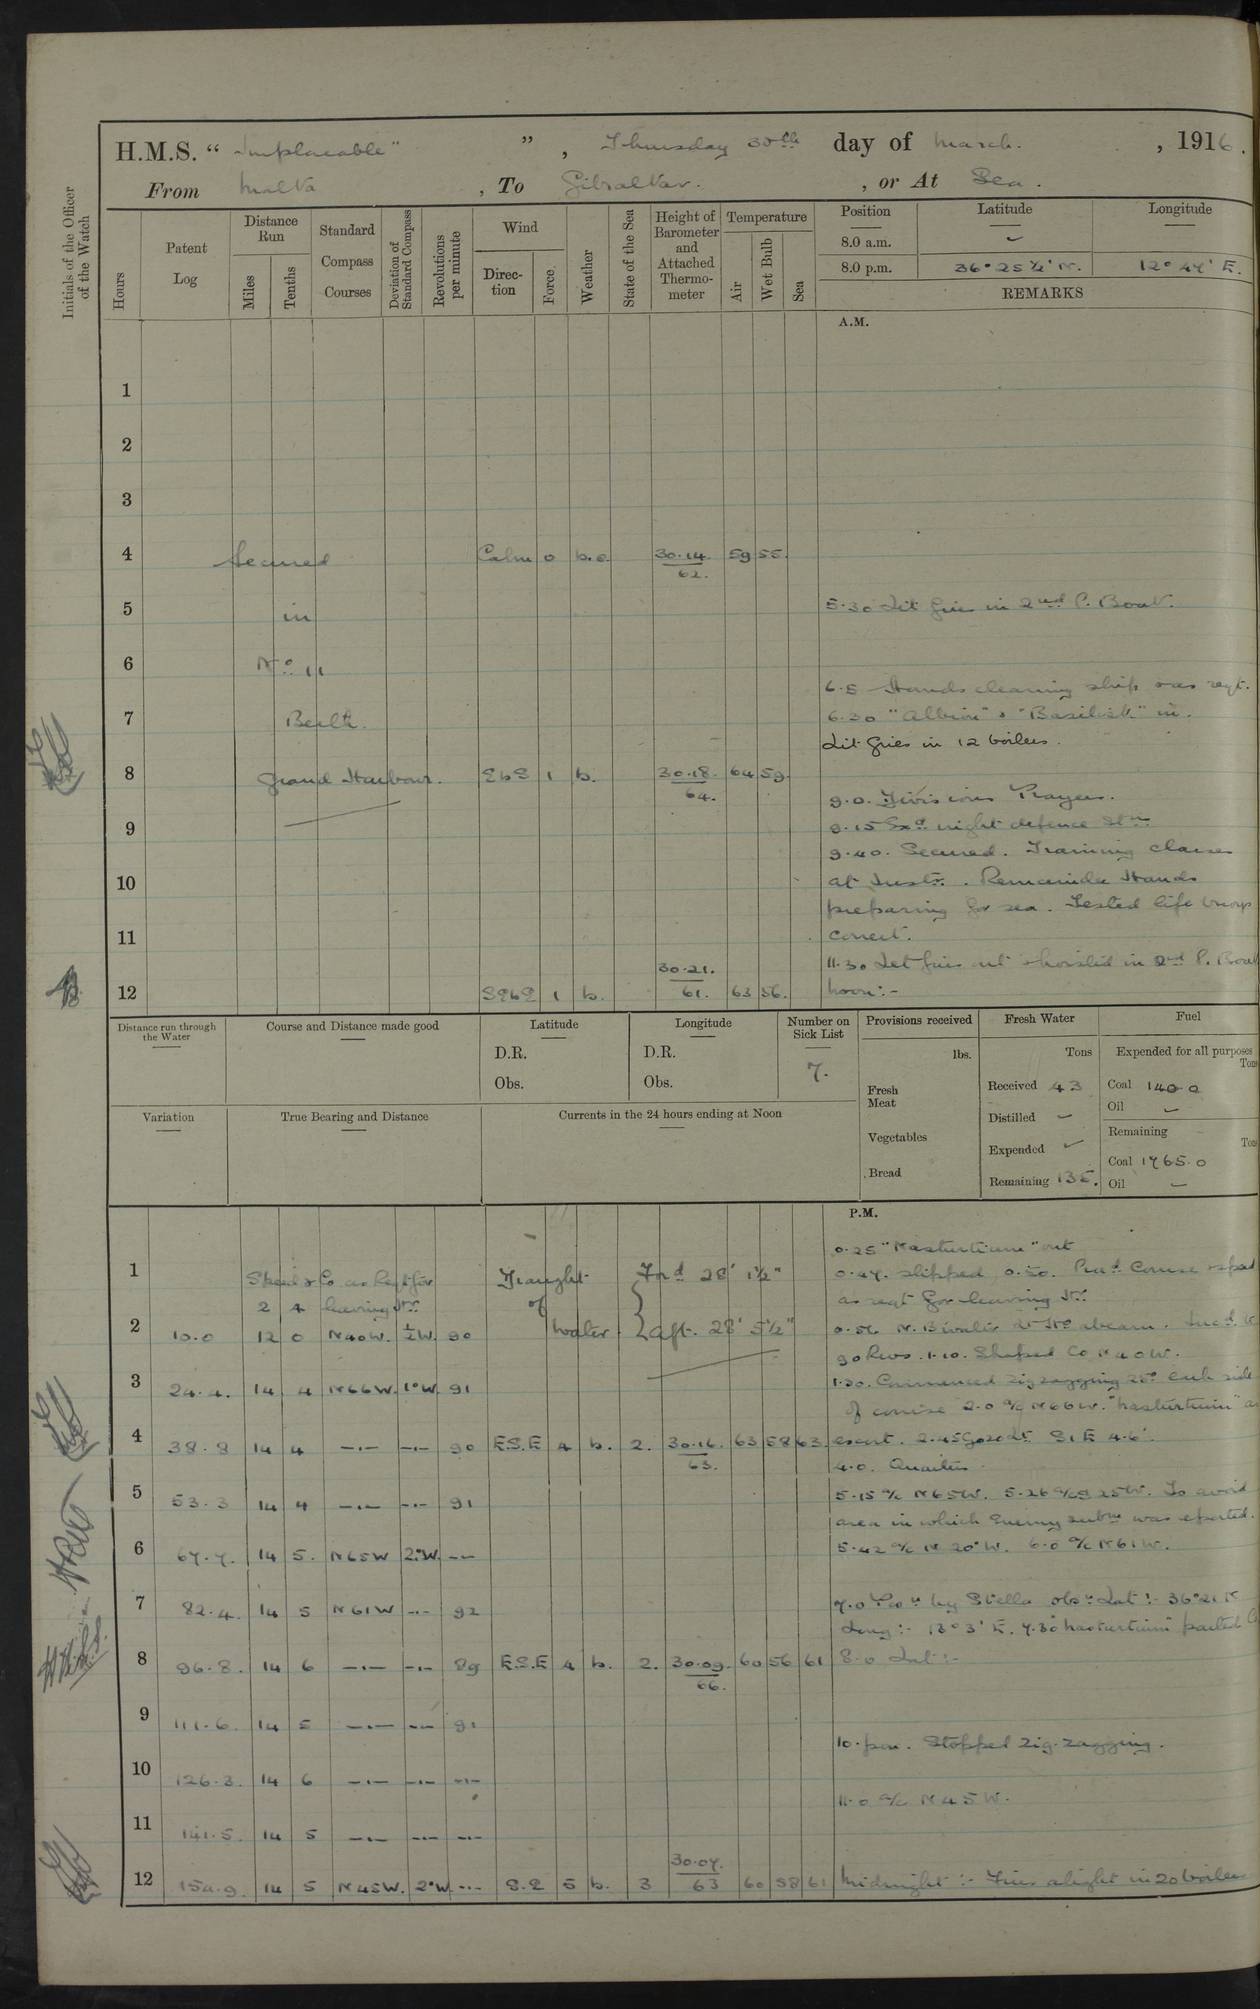 H.M.S. " Implacable " , Thursday 30th day of March. , 1916.
From Malta , To Gibraltar. , or At Sea.
Initials of the Officer of the Watch
Hours
Patent Log
Distance Run
Miles
Tenths
Standard Compass Courses
Deviation of Standard Compass
Revolutions per minute
Wind
Direc-tion
Force.
Weather
State of the Sea
Height of Barometer and Attached Thermo-meter
Temperature
Air
Wet Bulb
Sea
Position Latitude Longitude
8.0 a.m. ✓
8.0 p.m. 36° 25½' N. 12° 47' E.
REMARKS
A.M.
1
2
3
4 Secured Calm 0 b.c. 30.14. 62. 59 55.
5 in 5.30 Lit fires in 2nd P. Boat.
6 No 11
6.5 Hands cleaning ship as reqt.
7 Berth. 6.30 "Albion" & "Basilisk" in.
Lit fires in 12 boilers.
8 Grand Harbour. EbS 1 b. 30.18. 64. 64 59.
9.0. Divisions Prayers.
9 9.15 Exd night defence Stns
9.40. Secured. Training classes
10 at Instr. Remainder Hands
preparing for sea. Tested life buoys
11 correct.
11.30 Let fires out & hoisted in 2nd P. Boat
12 SEbE 1 b. 30.21. 61. 63 56. Noon:-
Distance run through the Water
Course and Distance made good
Latitude
D.R.
Obs.
Longitude
D.R.
Obs.
Number on Sick List
7.
Provisions received
lbs.
Fresh Meat
Vegetables
Bread
Fresh Water
Tons
Received 43
Distilled –
Expended ✓
Remaining 135.
Fuel
Expended for all purposes
Tons
Coal 140.0
Oil –
Remaining
Tons
Coal 1765.0
Oil –
Variation
True Bearing and Distance
Currents in the 24 hours ending at Noon
P.M.
0.25 "Nasturtium" out
1 Speed & Co as Reqt for Draught Ford 28' 1½" 0.47. slipped 0.50. Course & speed
2 4 leaving Hr. of as reqt for leaving Hr.
2 10.0 12 0 N40W. ½W. 90 Water. aft. 28' 5½" 0.56 abeam.
90 Revs. 1.10. Shaped Co N40W.
3 24.4. 14 4 N66W. 1°W. 91 1.30. Commenced zigzagging 25° each side
of course 2.0 a/c N66W. "Nasturtium" as
4 38.8 14 4 –·– –·– 90 E.S.E 4 b. 2. 30.16. 63. 63 58 63 escort. 2.45 Gozo Lt. S1E 4.6'
4.0. Quarters.
5 53.3 14 4 –·– –·– 91 5.15 a/c N65W. 5.26 a/c S25W. To avoid
area in which Enemy subm was reported.
6 67.7. 14 5. N65W 2°W. –·– 5.42 a/c N20°W. 6.0 a/c N61W.
7 82.4. 14 5 N61W –·– 92 7.0 Posn by Stella obs:- Lat:- 36°21 N
Long:- 13° 3' E. 7.30 Nasturtium parted Co
8 96.8. 14 6 –·– –·– 89 E.S.E 4 b. 2. 30.09. 66. 60 56 61 8.0 Lat:-
9 111.6. 14 5 –·– –·– 91
10.pm. Stopped zig-zagging.
10 126.3. 14 6 –·– –·– –·–
11.0 a/c N45W.
11 141.5. 14 5 –·– –·– –·–
12 154.9. 14 5 N45W. 2°W. –·– S.E 5 b. 3 30.07. 63 60 58 61 Midnight:- Fires alight in 20 boilers